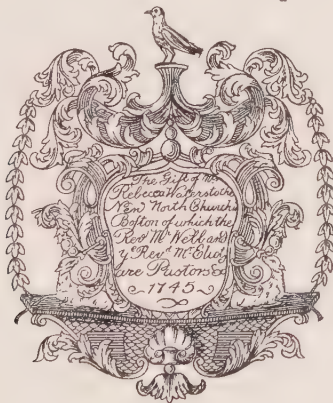 The Gift of Mrs
Rebecca Waters to the
New North Church in
Boston of which the
Revd Mr Webb and
ye Revd Mr Eliot
are Pastors
1745